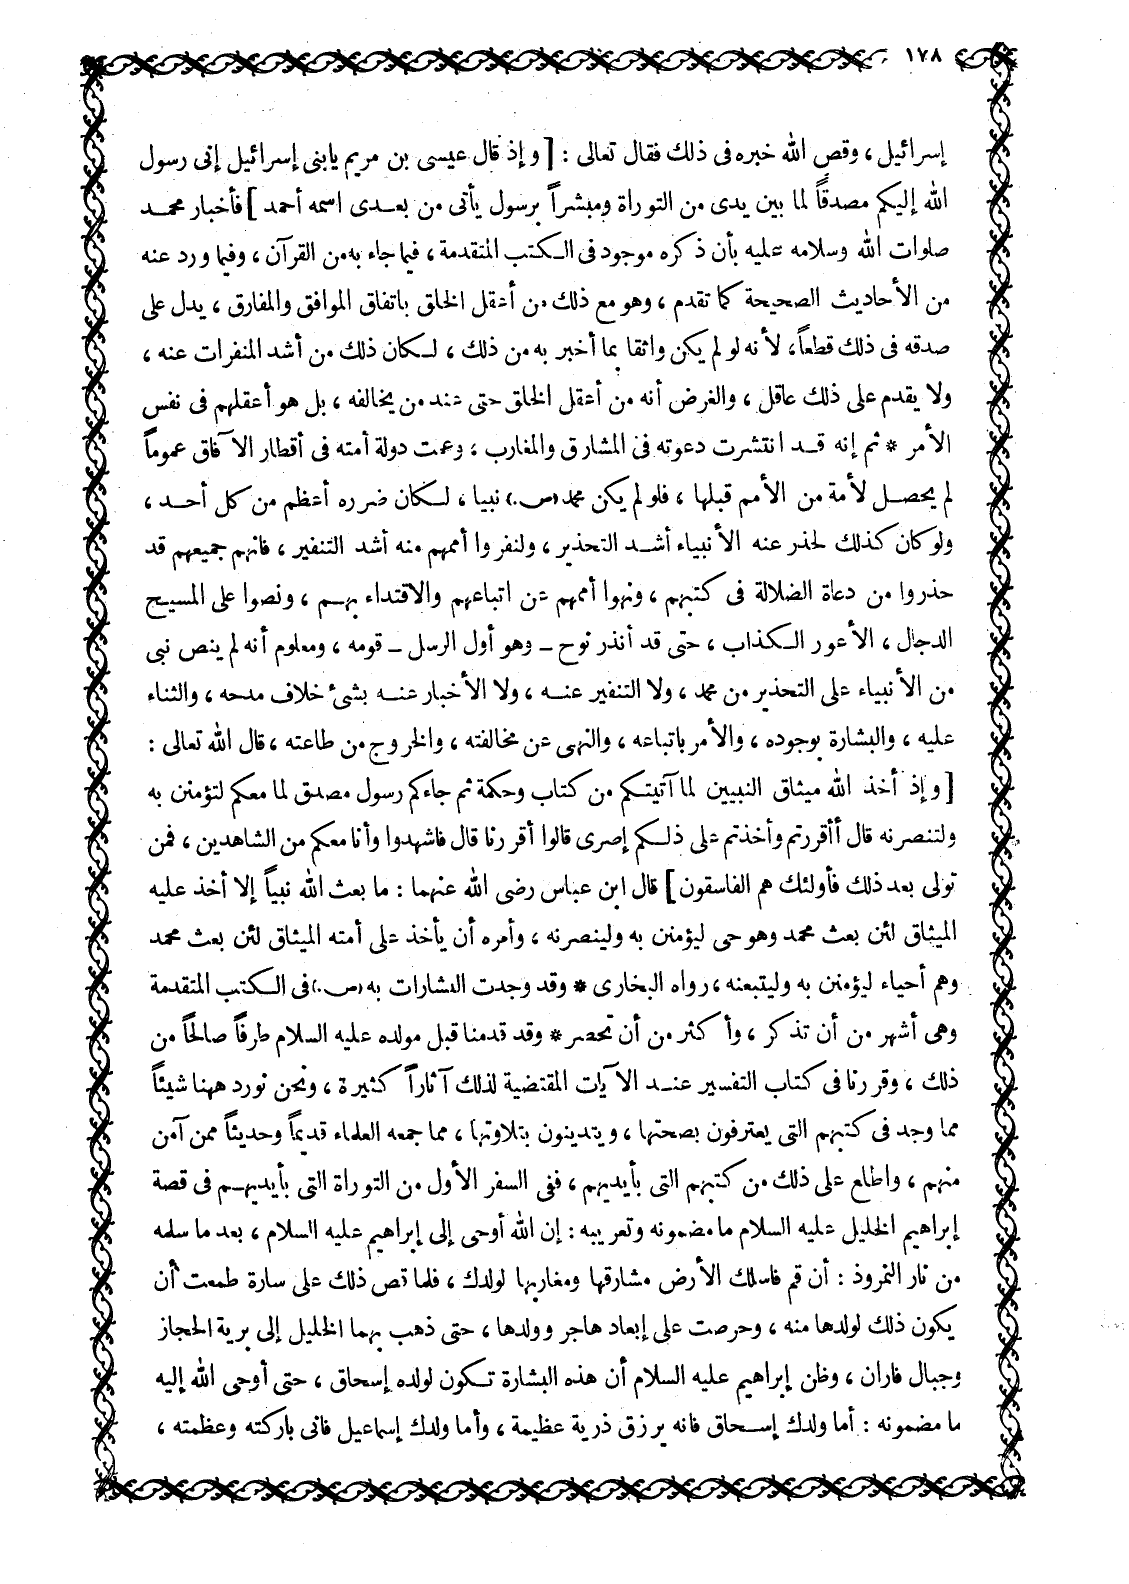 ١٧٨
إسرائيل ، وقص الله خبره فى ذلك فقال تعالى : [ وإذ قال عيسى بن مريم يابنى إسرائيل إنى رسول
الله إليكم مصدقاً لما بين يدى من التوراة ومبشراً برسول يأتى من بعدى اسمه أحمد ] فأخبار محمد
صلوات الله وسلامه عليه بأن ذكره موجود فى الكتب المتقدمة ، فيما جاء به من القرآن ، وفيما ورد عنه
من الأحاديث الصحيحة كما تقدم ، وهو مع ذلك من أعقل الخلق باتفاق الموافق والمفارق ، يدل على
صدقه فى ذلك قطعاً، لأنه لو لم يكن واثقا بما أخبر به من ذلك ، لكان ذلك من أشد المنفرات عنه ،
ولا يقدم على ذلك عاقل ، والغرض أنه من أعقل الخلق حتى عند من يخالفه ، بل هو أعقلهم فى نفس
الأمر * ثم إنه قد انتشرت دعوته فى المشارق والمغارب ، وعمت دولة أمته فى أقطار الآفاق عموماً
لم يحصل لأمة من الأمم قبلها ، فلو لم يكن محمد (ص.) نبيا ، لكان ضرره أعظم من كل أحد ،
ولو كان كذلك لحذر عنه الأنبياء أشد التحذير ، ولنفروا أممهم منه أشد التنفير ، فانهم جميعهم قد
حذروا من دعاة الضلالة فى كتبهم ، ونهوا أممهم عن اتباعهم والاقتداء بهم ، ونصوا على المسيح
الدجال ، الأعور الكذاب ، حتى قد أنذر نوح ــ وهو أول الرسل ــ قومه ، ومعلوم أنه لم ينص نبى
من الأنبياء على التحذير من محمد ، ولا التنفير عنه ، ولا الأخبار عنه بشئ خلاف مدحه ، والثناء
عليه ، والبشارة بوجوده ، والأمر باتباعه ، والنهى عن مخالفته ، والخروج من طاعته ، قال الله تعالى :
[ وإذ أخذ الله ميثاق النبيين لما آتيتكم من كتاب وحكمة ثم جاءكم رسول مصدق لما معكم لتؤمنن به
ولتنصرنه قال أأقررتم وأخذتم على ذلكم إصرى قالوا أقررنا قال فاشهدوا وأنا معكم من الشاهدين ، فمن
تولى بعد ذلك فأولئك هم الفاسقون ] قال ابن عباس رضى الله عنهما : ما بعث الله نبياً إلا أخذ عليه
الميثاق لئن بعث محمد وهو حى ليؤمنن به ولينصرنه ، وأمره أن يأخذ على أمته الميثاق لئن بعث محمد
وهم أحياء ليؤمنن به وليتبعنه ، رواه البخارى * وقد وجدت البشارات به (ص.) فى الكتب المتقدمة
وهى أشهر من أن تذكر ، وأكثر من أن تحصر * وقد قدمنا قبل مولده عليه السلام طرفاً صالحاً من
ذلك ، وقررنا فى كتاب التفسير عند الآيات المقتضية لذلك آثاراً كثيرة ، ونحن نورد ههنا شيئاً
مما وجد فى كتبهم التى يعترفون بصحتها ، ويتدينون بتلاوتها ، مما جمعه العلماء قديماً وحديثاً ممن آمن
منهم ، واطلع على ذلك من كتبهم التى بأيديهم ، ففى السفر الأول من التوراة التى بأيديهم فى قصة
إبراهيم الخليل عليه السلام ما مضمونه وتعريبه : إن الله أوحى إلى إبراهيم عليه السلام ، بعد ما سلمه
من نار النمروذ : أن قم فاسلك الأرض مشارقها ومغاربها لولدك ، فلما قص ذلك على سارة طمعت أن
يكون ذلك لولدها منه ، وحرصت على إبعاد هاجر وولدها ، حتى ذهب بهما الخليل إلى برية الحجاز
وجبال فاران ، وظن إبراهيم عليه السلام أن هذه البشارة تكون لولده إسحاق ، حتى أوحى الله إليه
ما مضمونه : أما ولدك إسحاق فانه يرزق ذرية عظيمة ، وأما ولدك إسماعيل فانى باركته وعظمته ،